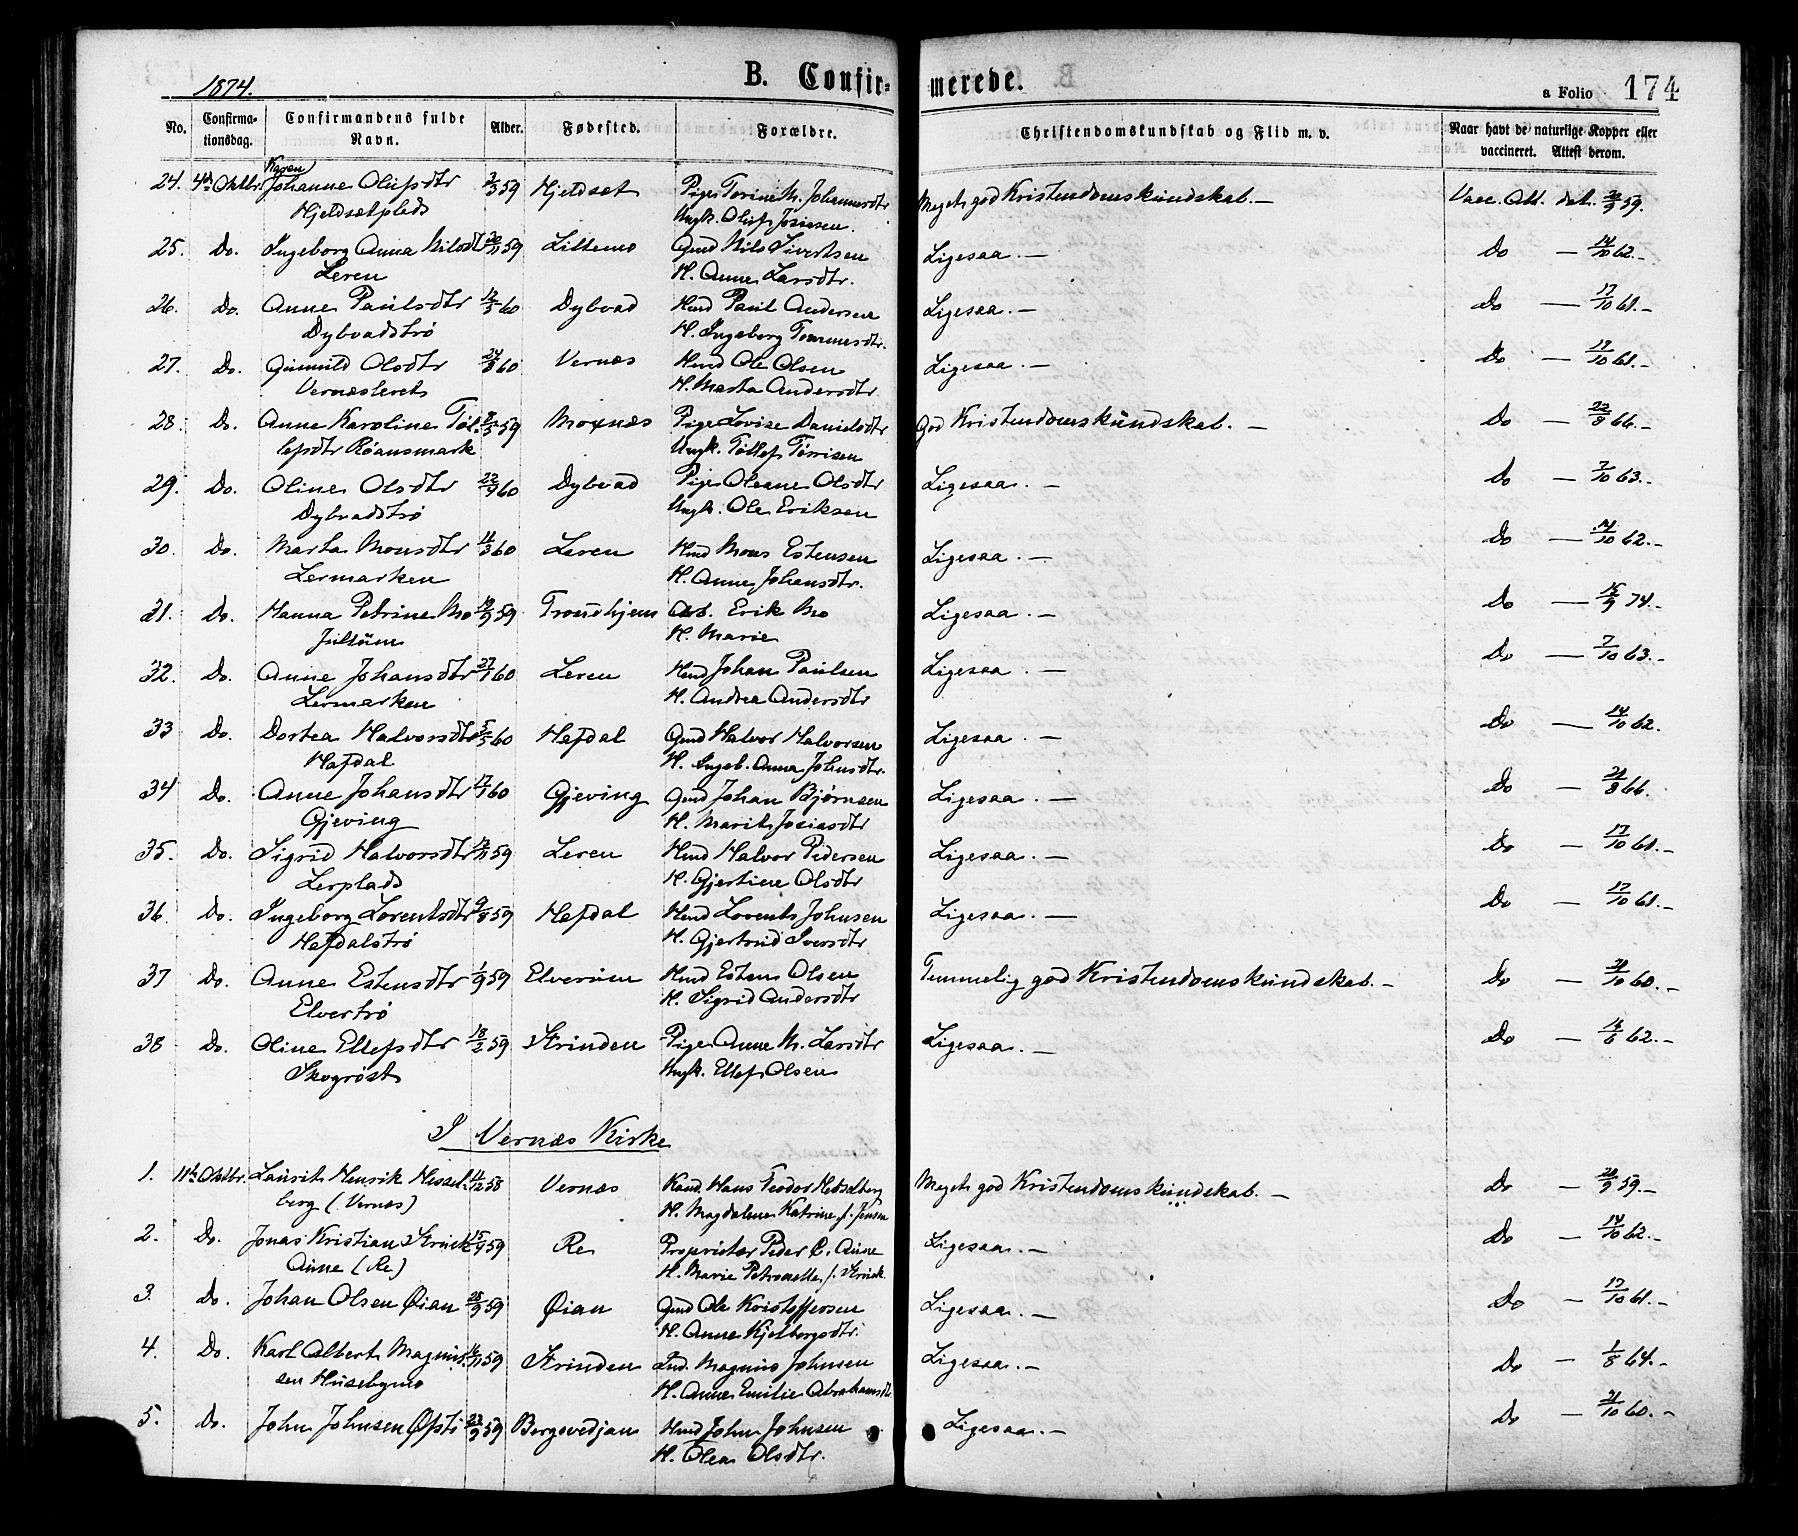 1874.
B. Confir-
merede.
a Folio 174
No.
Confirma-
tionsdag.
Confirmandens fulde
Navn.
Alder.
Fødested.
Forældre.
Christendomskundskab og Flid m. v.
Naar havt de naturlige Kopper eller
vaccineret. Attest derom.
Karen
24. 4de Oktbr. Johanne Olufsdtr 2/3 59 Hjeldset Pige Torine M. Johannesdtr Meget god Kristendomskundskab. — Vacc. Att. dat. 20/9 59.
Hjeldsetplads Ungk. Oluf Josiesen.
25. Do. Ingeborg Anna Nilsdt 20/11 59 Littemo Gmd Nils Sivertsen Ligesaa. — Do — 14/10 62. –
Leren H. Anne Larsdtr.
26. Do. Anne Paulsdtr 12/3 60 Dybvad Hmd Paul Andersen Ligesaa. — Do — 17/10 61. –
Dybvadstrø H. Ingeborg Tommesdtr.
27. Do. Gunnild Olsdtr 24/8 60 Vernæs Hmd Ole Olsen Ligesaa. — Do — 17/10 61. –
Vernæsleret H. Marta Andersdtr
28. Do. Anne Karoline Tøl- 8/5 59 Moxnæs Pige Lovise Danielsdtr God Kristendomskundskab. — Do — 22/8 66. –
lefsdtr Røansmark Ungk. Tøllef Tørrisen
29. Do. Oline Olsdtr 22/9 60 Dybvad Pige Oleane Olsdtr Ligesaa. — Do — 7/10 63. –
Dybvadstrø Ungk. Ole Eriksen
30. Do. Marta Monsdtr 11/3 60 Leren Hmd Mons Estensen Ligesaa. — Do — 14/10 62. –
Lermarken H. Anne Johansdtr.
31. Do. Hanna Petrine Mo 19/9 59 Trondhjem Arb. Erik Mo Ligesaa. — Do — 15/9 74. –
Jullum H. Marie
32. Do. Anne Johansdtr 27/1 60 Leren Hmd Johan Paulsen Ligesaa. — Do — 7/10 63. –
Lermarken H. Andrea Andersdtr
33 Do. Dortea Halvorsdtr 5/5 60 Hefdal Gmd Halvor Halvorsen Ligesaa. — Do — 14/10 62.
Hafdal H. Ingeb. Anna Johnsdtr.
34 Do. Anne Johansdtr 17/1 60 Gjeving Gmd Johan Bjørnsen Ligesaa. — Do — 22/8 66.
Gjeving H. Marit Josiasdtr
35. Do. Sigrid Halvorsdtr 12/11 59 Leren Hmd Halvor Pedersen Ligesaa. — Do — 17/10 61. –
Lerplads H. Gjertine Olsdtr
36. Do. Ingeborg Lorentsdtr 9/8 59 Hefdal Hmd Lorents Johnsen Ligesaa. — Do — 17/10 61. –
Hefdalstrø H. Gjertrud Iversdtr
37 Do. Anne Estensdtr 1/9 59 Elverøien Hmd Esten Olsen Temmelig god Kristendomskundskab. – Do — 21/10 60. –
Elvertrø H. Sigrid Andersdtr
38 Do. Oline Ellefsdtr 18/2 59 Strinden Pige Anne M. Larsdtr Ligesaa. — Do — 14/6 62. –
Skogrøst Ungk. Ellef Olsen
I Vernæs Kirke
1. 11te Oktbr. Laurits Henrik Hessel- 11/12 58 Vernæs Kand. Hans Teodor Hesselberg Meget god Kristendomskundskab. — Do — 20/9 59. –
berg (Vernæs) H. Magdalene Katrine f. Jensen
2. Do. Jonas Kristian Strick 15/9 59 Re Proprietær Peder C. Aune Ligesaa. — Do — 14/10 62. –
Aune (Re) H. Marie Petronelle f. Strick
3. Do. Johan Olsen Øian 28/9 59 Øian Gmd Ole Kristoffersen Ligesaa. — Do — 17/10 61. –
H. Anne Kjelbergsdtr.
4. Do. Karl Albert Magnus- 16/11 59 Strinden Ind. Magnus Johnsen Ligesaa. — Do — 1/8 64. –
sen Husebymo H. Anne Emilie Abrahamsdt.
5. Do. John Johnsen Øfsti 23/9 59 Borgsvedjan Hmd John Johnsen Ligesaa. — Do — 21/10 60. –
H. Olea Olsdtr.